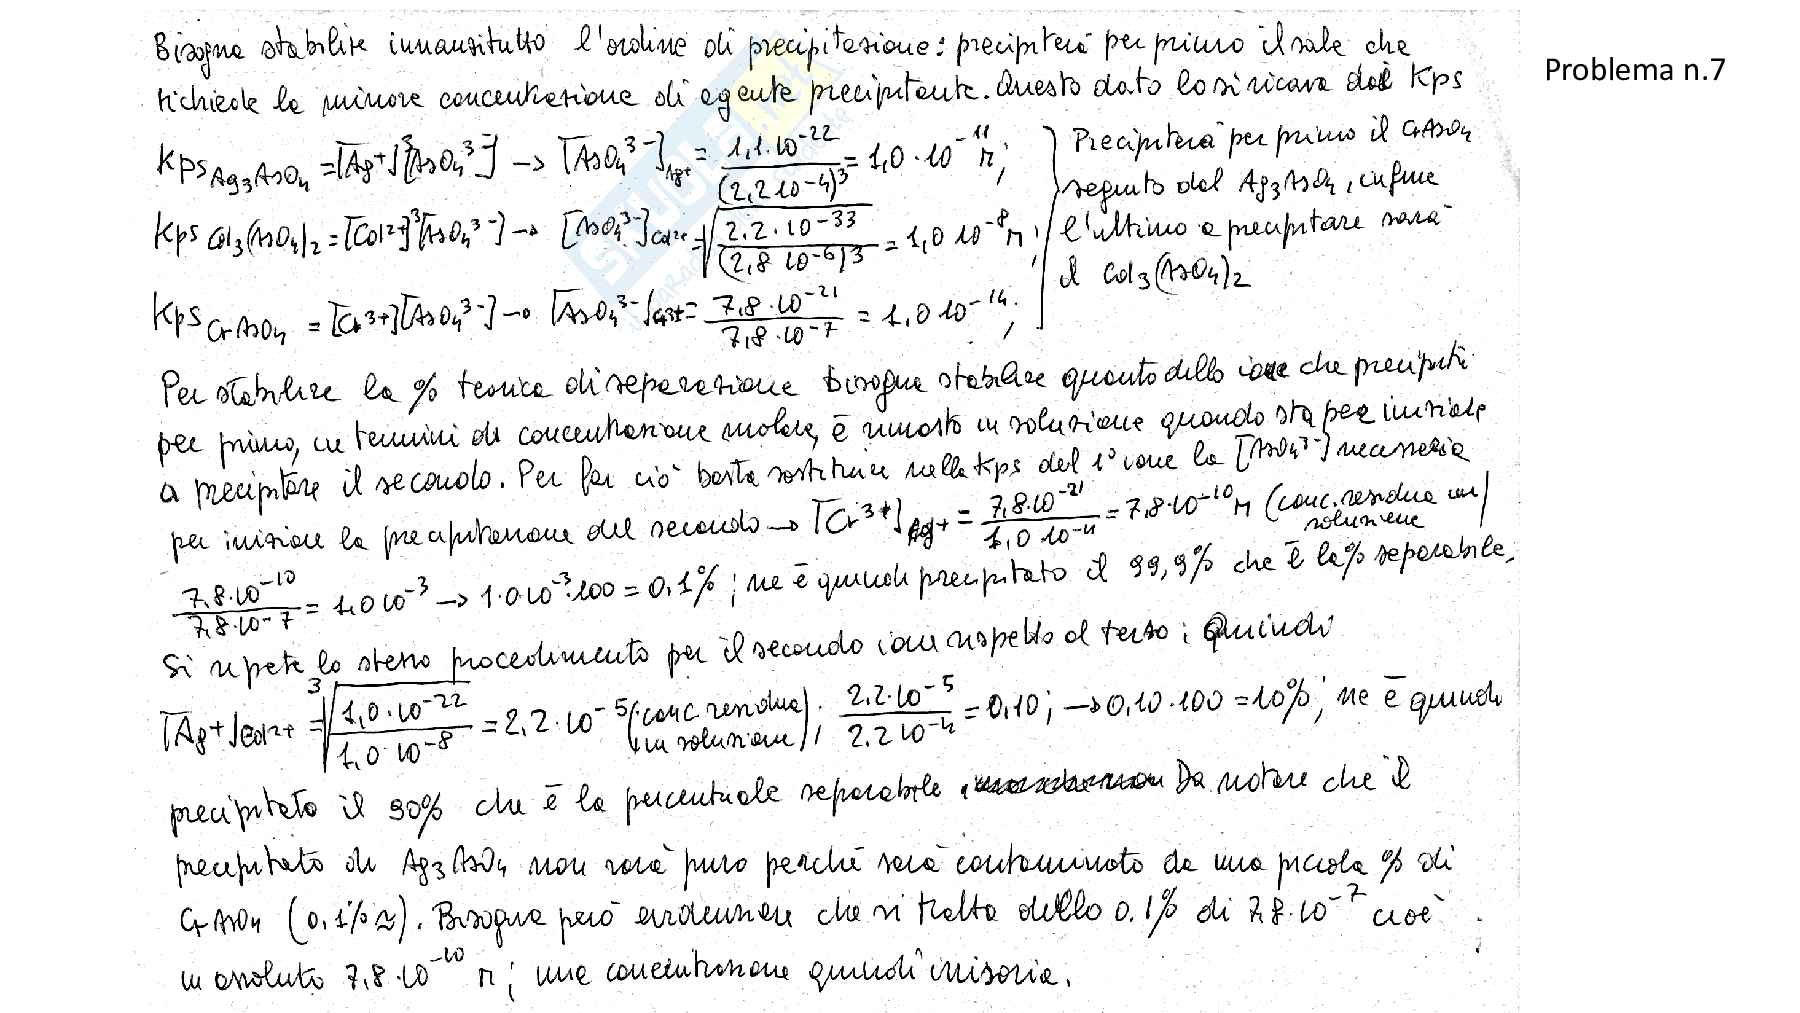 Problema n.7
Bisogna stabilire innanzitutto l'ordine di precipitazione: precipiterà per primo il sale che
richiede la minore concentrazione di agente precipitante. Questo dato lo si ricava dal Kps
Kps Ag3AsO4 = [Ag+]^3[AsO4^3-] → [AsO4^3-]Ag+ = 1,1·10^-22 / (2,2 10^-4)^3 = 1,0·10^-11 M;
Kps Cd3(AsO4)2 = [Cd2+]^3[AsO4^3-] → [AsO4^3-]Cd2+ = √(2.2·10^-33 / (2,8 10^-6)^3) = 1,0 10^-8 M;
Kps CrAsO4 = [Cr3+][AsO4^3-] → [AsO4^3-]Cr3+ = 7,8·10^-21 / 7,8·10^-7 = 1,0 10^-14;
Precipiterà per primo il CrAsO4
seguito dal Ag3AsO4, infine
l'ultimo a precipitare sarà
il Cd3(AsO4)2
Per stabilire la % teorica di separazione bisogna stabilire quanto dello ione che precipiti
per primo, in termini di concentrazione molare, è rimasto in soluzione quando sta per iniziare
a precipitare il secondo. Per far ciò basta sostituire nella Kps del 1° ione la [AsO4^3-] necessaria
per iniziare la precipitazione del secondo → [Cr3+]Ag+ = 7,8·10^-21 / 1,0 10^-11 = 7,8·10^-10 M (conc. residua in soluzione)
7,8·10^-10 / 7,8·10^-7 = 1,0 10^-3 → 1·0 10^-3·100 = 0,1%; ne è quindi precipitato il 99,9% che è la % separabile.
Si ripete lo stesso procedimento per il secondo ione rispetto al terzo; Quindi
[Ag+]Cd2+ = 3√(1,0·10^-22 / 1,0·10^-8) = 2,2·10^-5 (conc. residua in soluzione); 2,2·10^-5 / 2.2 10^-4 = 0,10; → 0,10·100 = 10%; ne è quindi
precipitato il 90% che è la percentuale separabile. Da notare che il
precipitato di Ag3AsO4 non sarà puro perché sarà contaminato da una piccola % di
CrAsO4 (0,1% ≈). Bisogna però evidenziare che si tratta dello 0.1% di 7,8·10^-7 cioè
in assoluto 7,8·10^-10 M; una concentrazione quindi irrisoria.